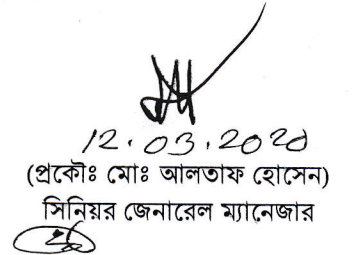 12.03.2020
(প্রকৌঃ মোঃ আলতাফ হোসেন)
সিনিয়র জেনারেল ম্যানেজার